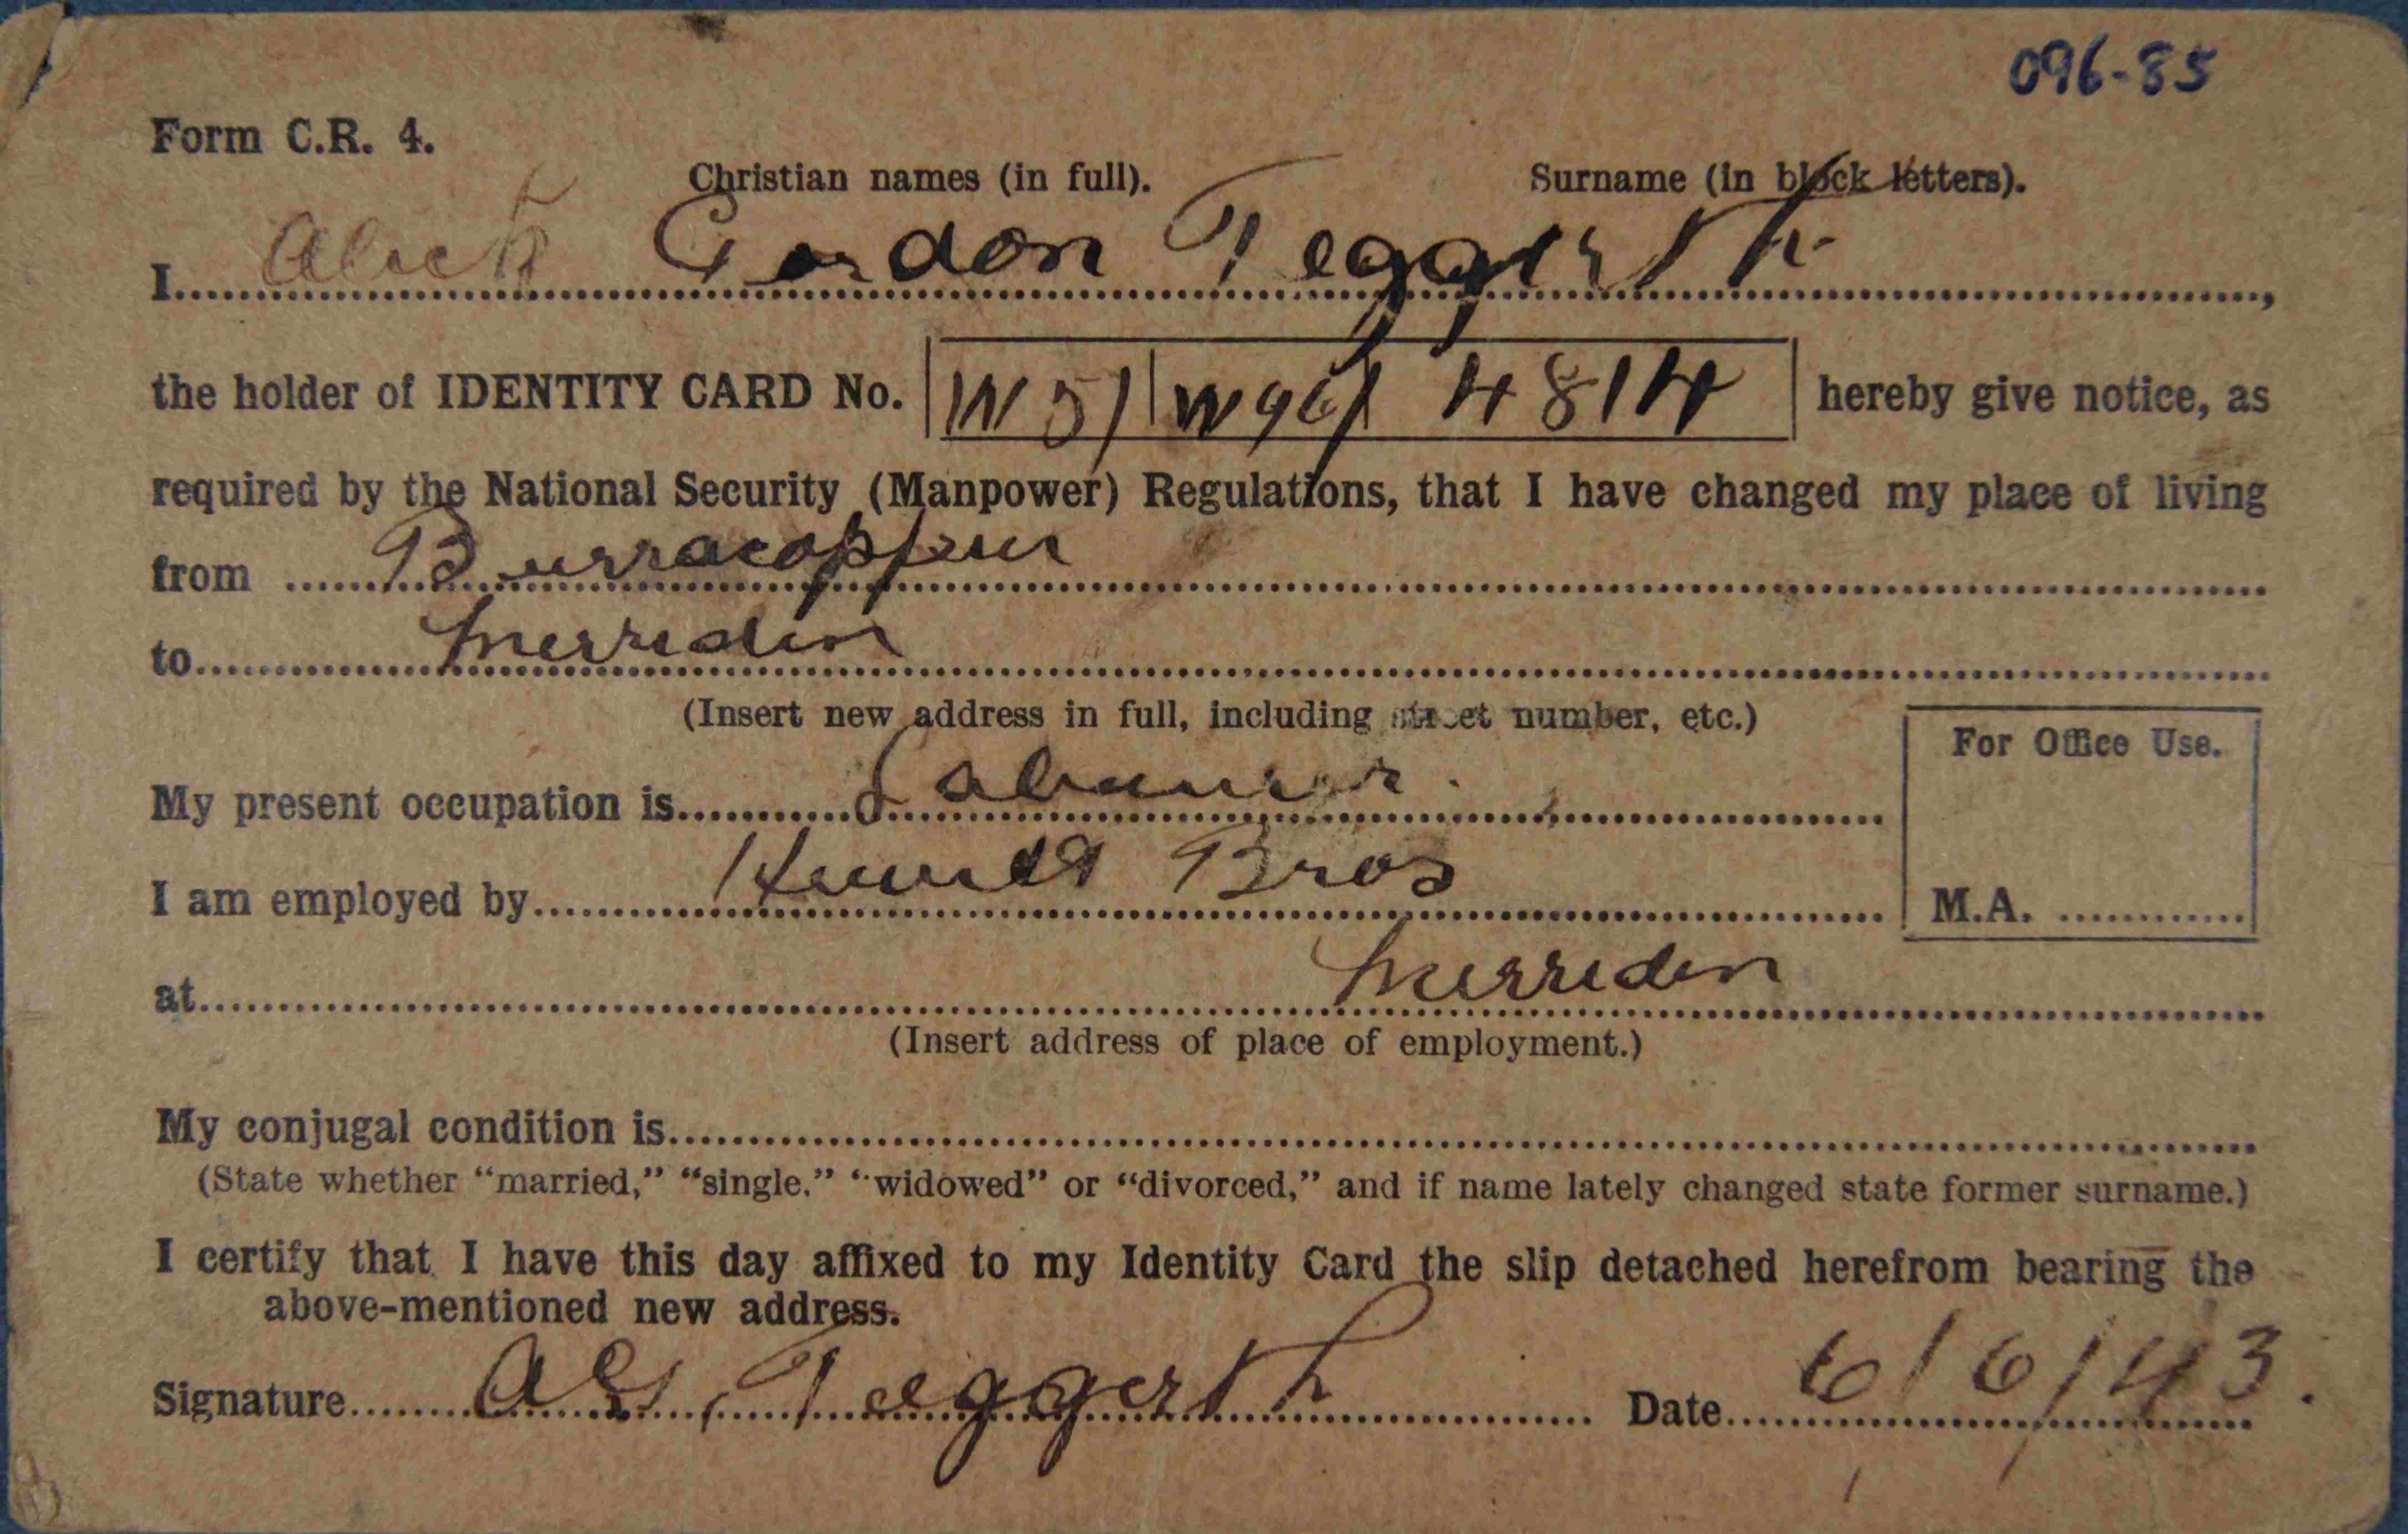 096-85
Form C.R. 4.
Christian names (in full). Surname (in block letters).
I Alick Gordon Teggerth,
the holder of IDENTITY CARD No. W 51 W96 4814 hereby give notice, as
required by the National Security (Manpower) Regulations, that I have changed my place of living
from Burracoppin
to Merredin
(Insert new address in full, including street number, etc.)
For Office Use.
My present occupation is Labourer.
I am employed by Bros
M.A.
at Merreden
(Insert address of place of employment.)
My conjugal condition is
(State whether "married," "single," "widowed" or "divorced," and if name lately changed state former surname.)
I certify that I have this day affixed to my Identity Card the slip detached herefrom bearing the
above-mentioned new address.
Signature A G. Teggerth Date 6/6/43.